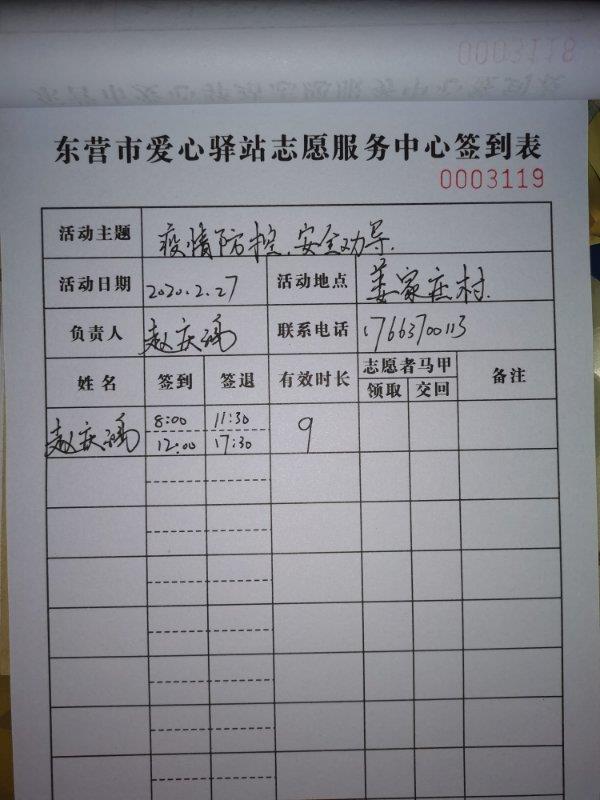 东营市爱心驿站志愿服务中心签到表
0003119
活动主题 疫情防控、安全劝导.
活动日期 2020.2.27 活动地点 姜家庄村.
负责人 赵庆 联系电话 17663700113
姓名 签到 签退 有效时长 志愿者马甲 备注
领取 交回
赵庆 8:00 11:30 9
12:00 17:30
0003118